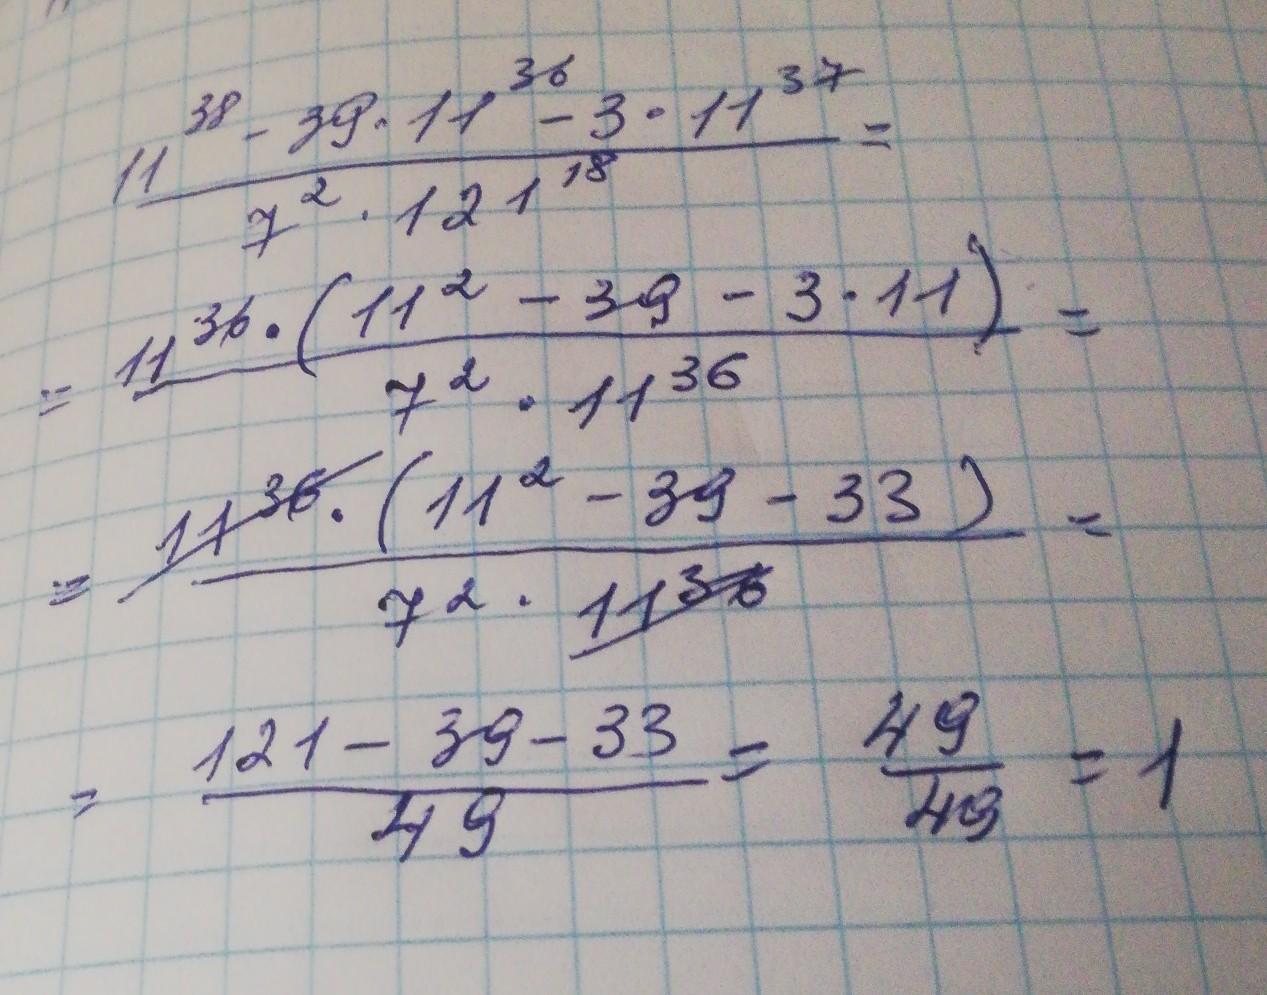 11^38 - 39 · 11^36 - 3 · 11^37 =
7^2 · 121^18
= 11^36 · (11^2 - 39 - 3 · 11) =
7^2 · 11^36
= 11^36 · (11^2 - 39 - 33) =
7^2 · 11^36
= 121 - 39 - 33 / 49 = 49 / 49 = 1